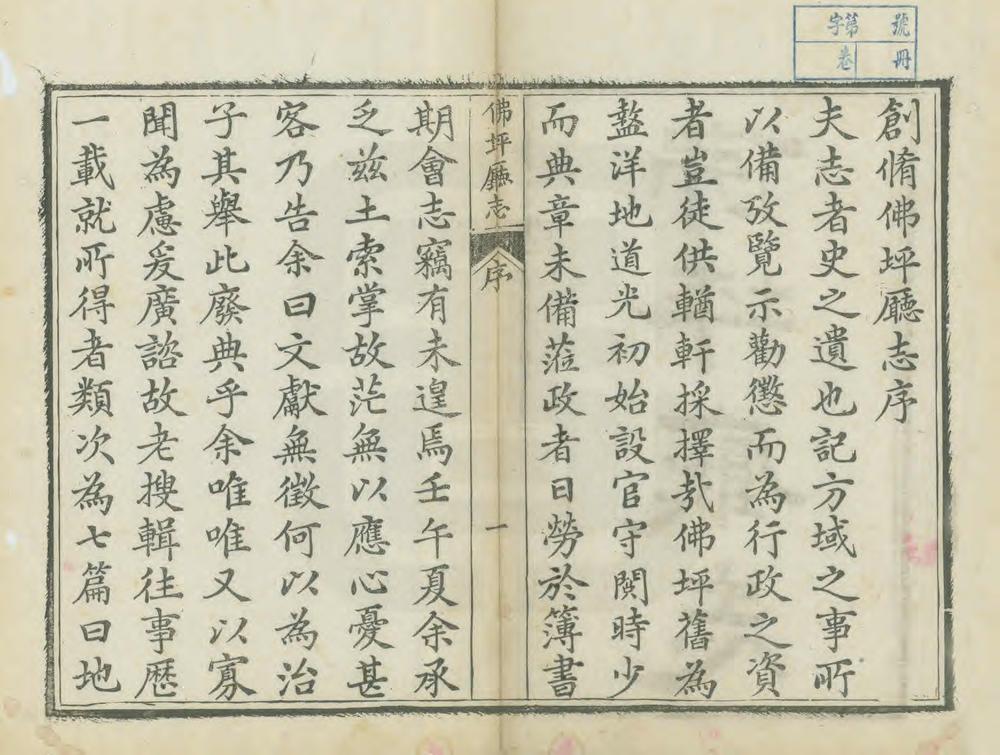 號
第
字
冊
卷
創脩佛坪廳志序
夫志者史之遺也記方域之事所
以備攷覽示勸懲而為行政之資
者豈徒供輶軒採擇㢤佛坪舊為
盩洋地道光初始設官守閱時少
而典章未備蒞政者日勞於簿書
佛坪廳志
序
一
期會志竊有未遑焉壬午夏余承
乏茲土索掌故茫無以應心憂甚
客乃告余曰文獻無徵何以為治
子其舉此廢典乎余唯唯又以寡
聞為慮爰廣諮故老搜輯往事歷
一載就所得者類次為七篇曰地